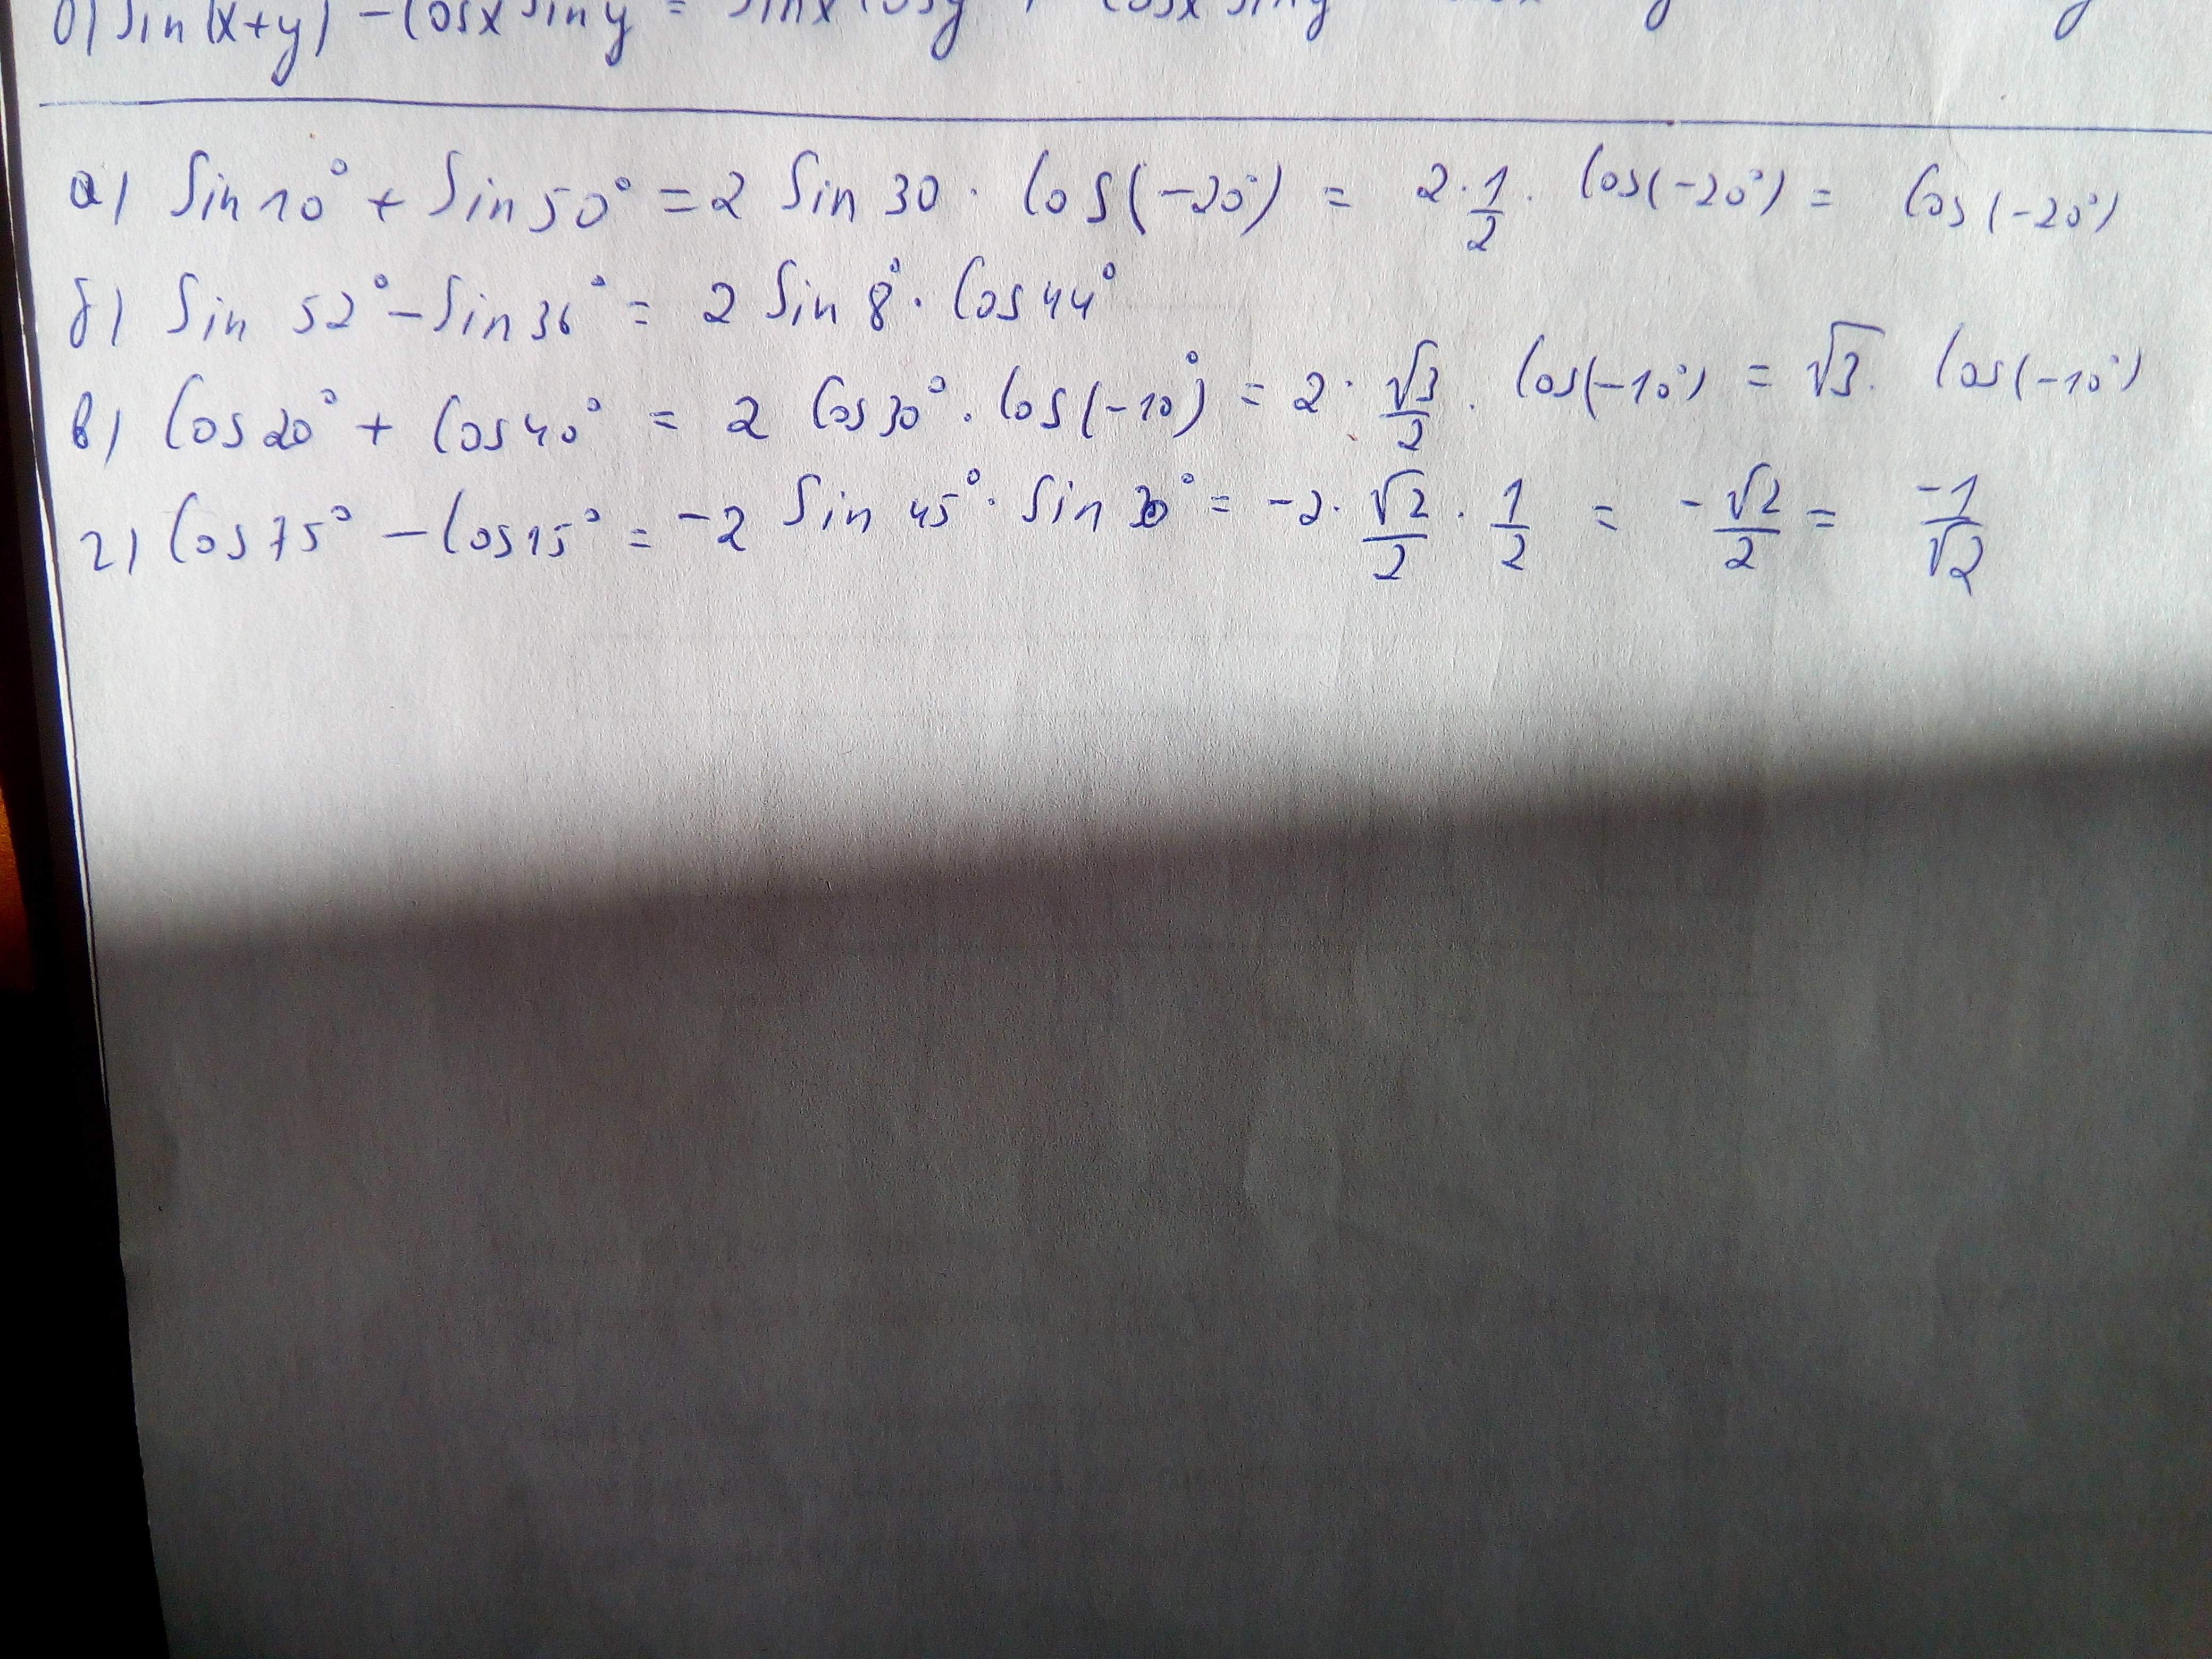 б) sin(x+y) - cosx siny = sinx cosy + cosx siny
а) Sin10° + Sin50° = 2 Sin 30 · Cos(-20°) = 2 · 1/2 · Cos(-20°) = Cos(-20°)
б) Sin 52° - Sin36° = 2 Sin 8° · Cos44°
в) Cos20° + Cos40° = 2 Cos30° · Cos(-10°) = 2 · √3/2 · Cos(-10°) = √3 · Cos(-10°)
г) Cos75° - Cos15° = -2 Sin 45° · Sin 30° = -2 · √2/2 · 1/2 = -√2/2 = -1/√2